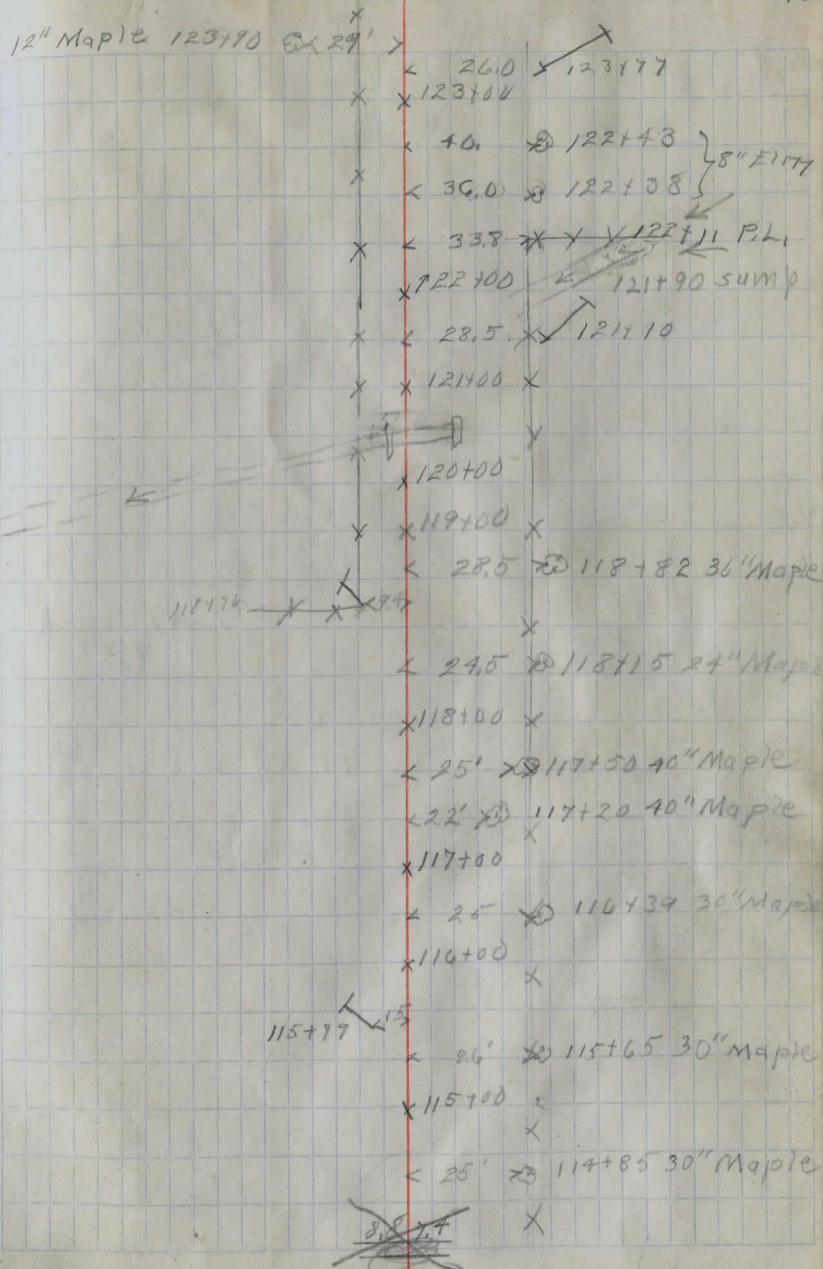 12" Maple 123+90 29'
26.0 123+77
123+00
40. 122+43
8" Elm
36.0 122+38
33.8 122+11 P.L.
122+00
121+90 sump
28.5 121+10
121+00
120+00
119+00
28.5 118+82 36" Maple
118+76 9.4
24.5 118+15 24" Maple
118+00
25' 117+50 40" Maple
22' 117+20 40" Maple
117+00
25 116+39 30" Maple
116+00
115+99 15
26' 115+65 30" Maple
115+00
25' 114+85 30" Maple